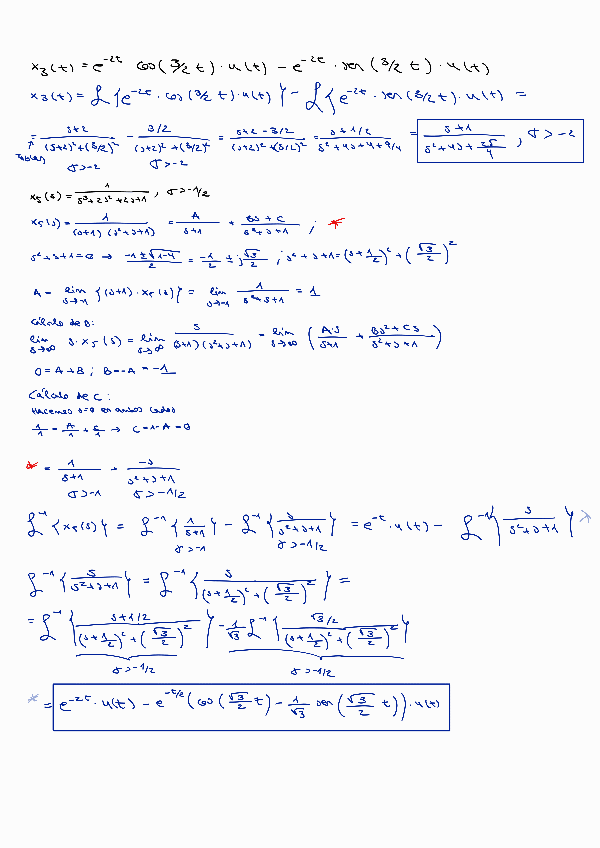 x₃(t) = e^{-2t} cos(3/2 t)·u(t) - e^{-2t}·sen(3/2 t)·u(t)
x₃(t) = ℒ{e^{-2t}·cos(3/2 t)·u(t)} - ℒ{e^{-2t}·sen(3/2 t)·u(t)} =
= (s+2)/((s+2)²+(3/2)²) - (3/2)/((s+2)²+(3/2)²) = (s+2-3/2)/((s+2)²+(3/2)²) = (s+1/2)/(s²+4s+4+9/4) = (s+1)/(s²+4s+25/4), σ>-2
Tablas σ>-2 σ>-2
x₅(s) = 1/(s³+2s²+2s+1), σ>-1/2
x₅(s) = 1/((s+1)(s²+s+1)) = A/(s+1) + (Bs+C)/(s²+s+1) ; *
s²+s+1=0 → (-1±√(1-4))/2 = -1/2 ± j√3/2 ; s²+s+1=(s+1/2)²+(√3/2)²
A = lim_{s→-1} {(s+1)·x₅(s)} = lim_{s→-1} 1/(s²+s+1) = 1
Cálculo de B:
lim_{s→∞} s·x₅(s) = lim_{s→∞} s/((s+1)(s²+s+1)) = lim_{s→∞} (A·s/(s+1) + (Bs²+Cs)/(s²+s+1))
0=A+B ; B=-A=-1
Cálculo de C:
Hacemos s=0 en ambos lados
1/1 = A/1 + C/1 → C=1-A=0
* = 1/(s+1) + -s/(s²+s+1)
σ>-1 σ>-1/2
ℒ⁻¹{x₅(s)} = ℒ⁻¹{1/(s+1)} - ℒ⁻¹{s/(s²+s+1)} = e^{-t}·u(t) - ℒ⁻¹{s/(s²+s+1)} *
σ>-1 σ>-1/2
ℒ⁻¹{s/(s²+s+1)} = ℒ⁻¹{s/((s+1/2)²+(√3/2)²)} =
= ℒ⁻¹{(s+1/2)/((s+1/2)²+(√3/2)²)} - 1/√3 ℒ⁻¹{(√3/2)/((s+1/2)²+(√3/2)²)}
σ>-1/2 σ>-1/2
* = e^{-2t}·u(t) - e^{-t/2}(cos(√3/2 t) - 1/√3 sen(√3/2 t))·u(t)